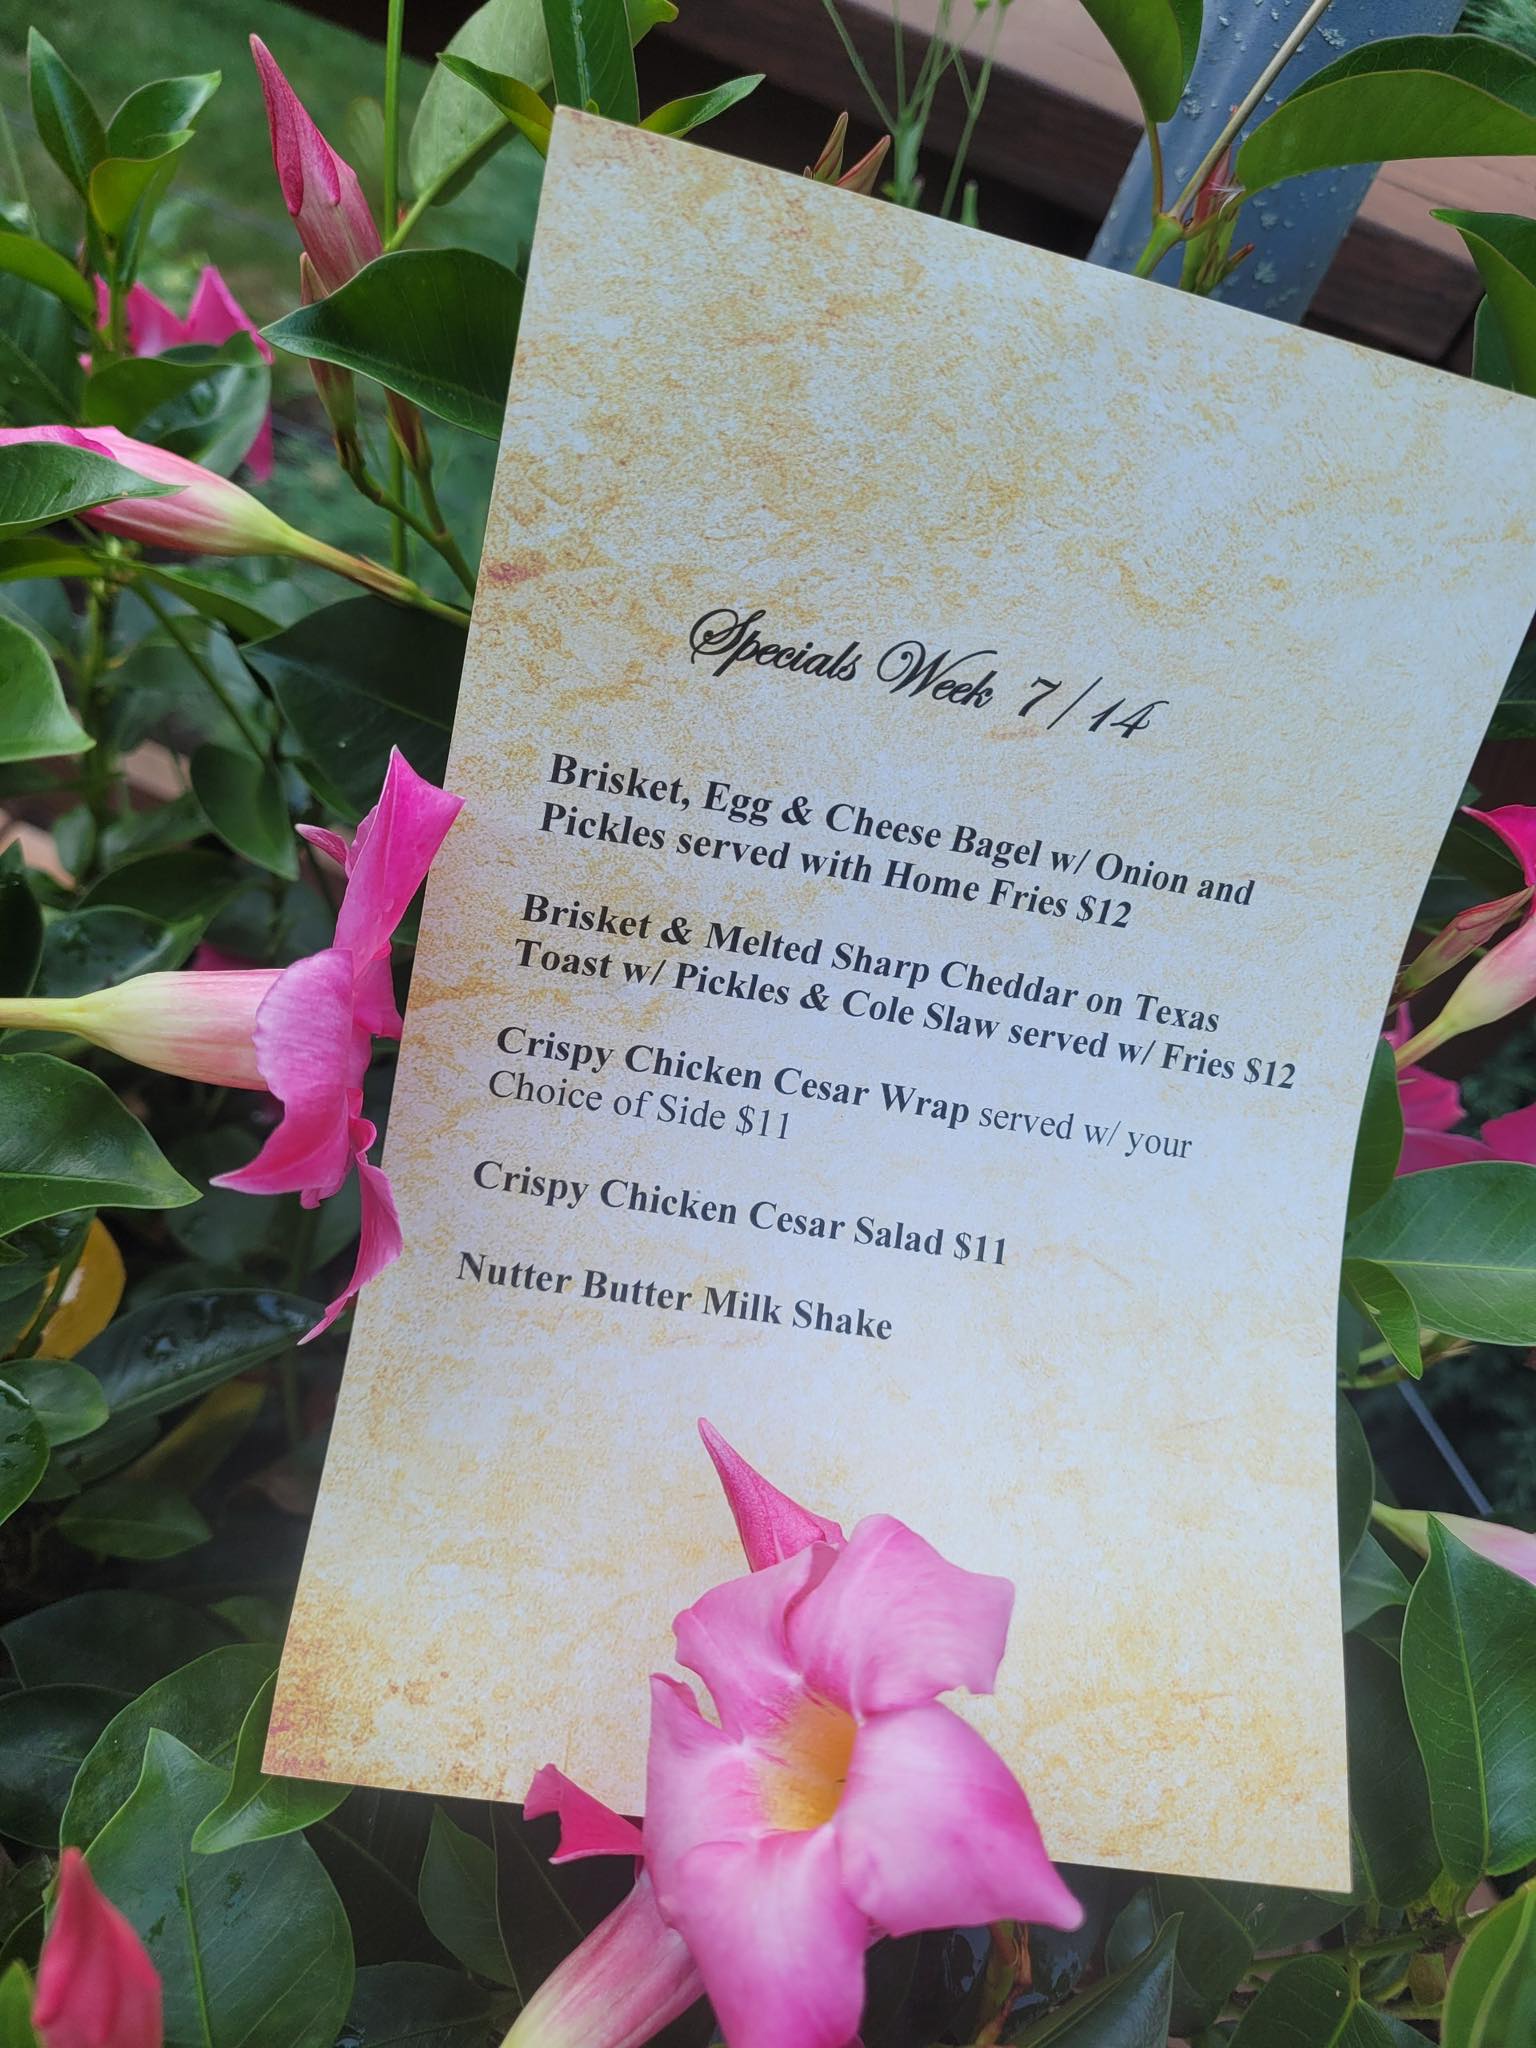 Specials Week 7/14
Brisket, Egg & Cheese Bagel w/ Onion and
Pickles served with Home Fries $12
Brisket & Melted Sharp Cheddar on Texas
Toast w/ Pickles & Cole Slaw served w/ Fries $12
Crispy Chicken Cesar Wrap served w/ your
Choice of Side $11
Crispy Chicken Cesar Salad $11
Nutter Butter Milk Shake